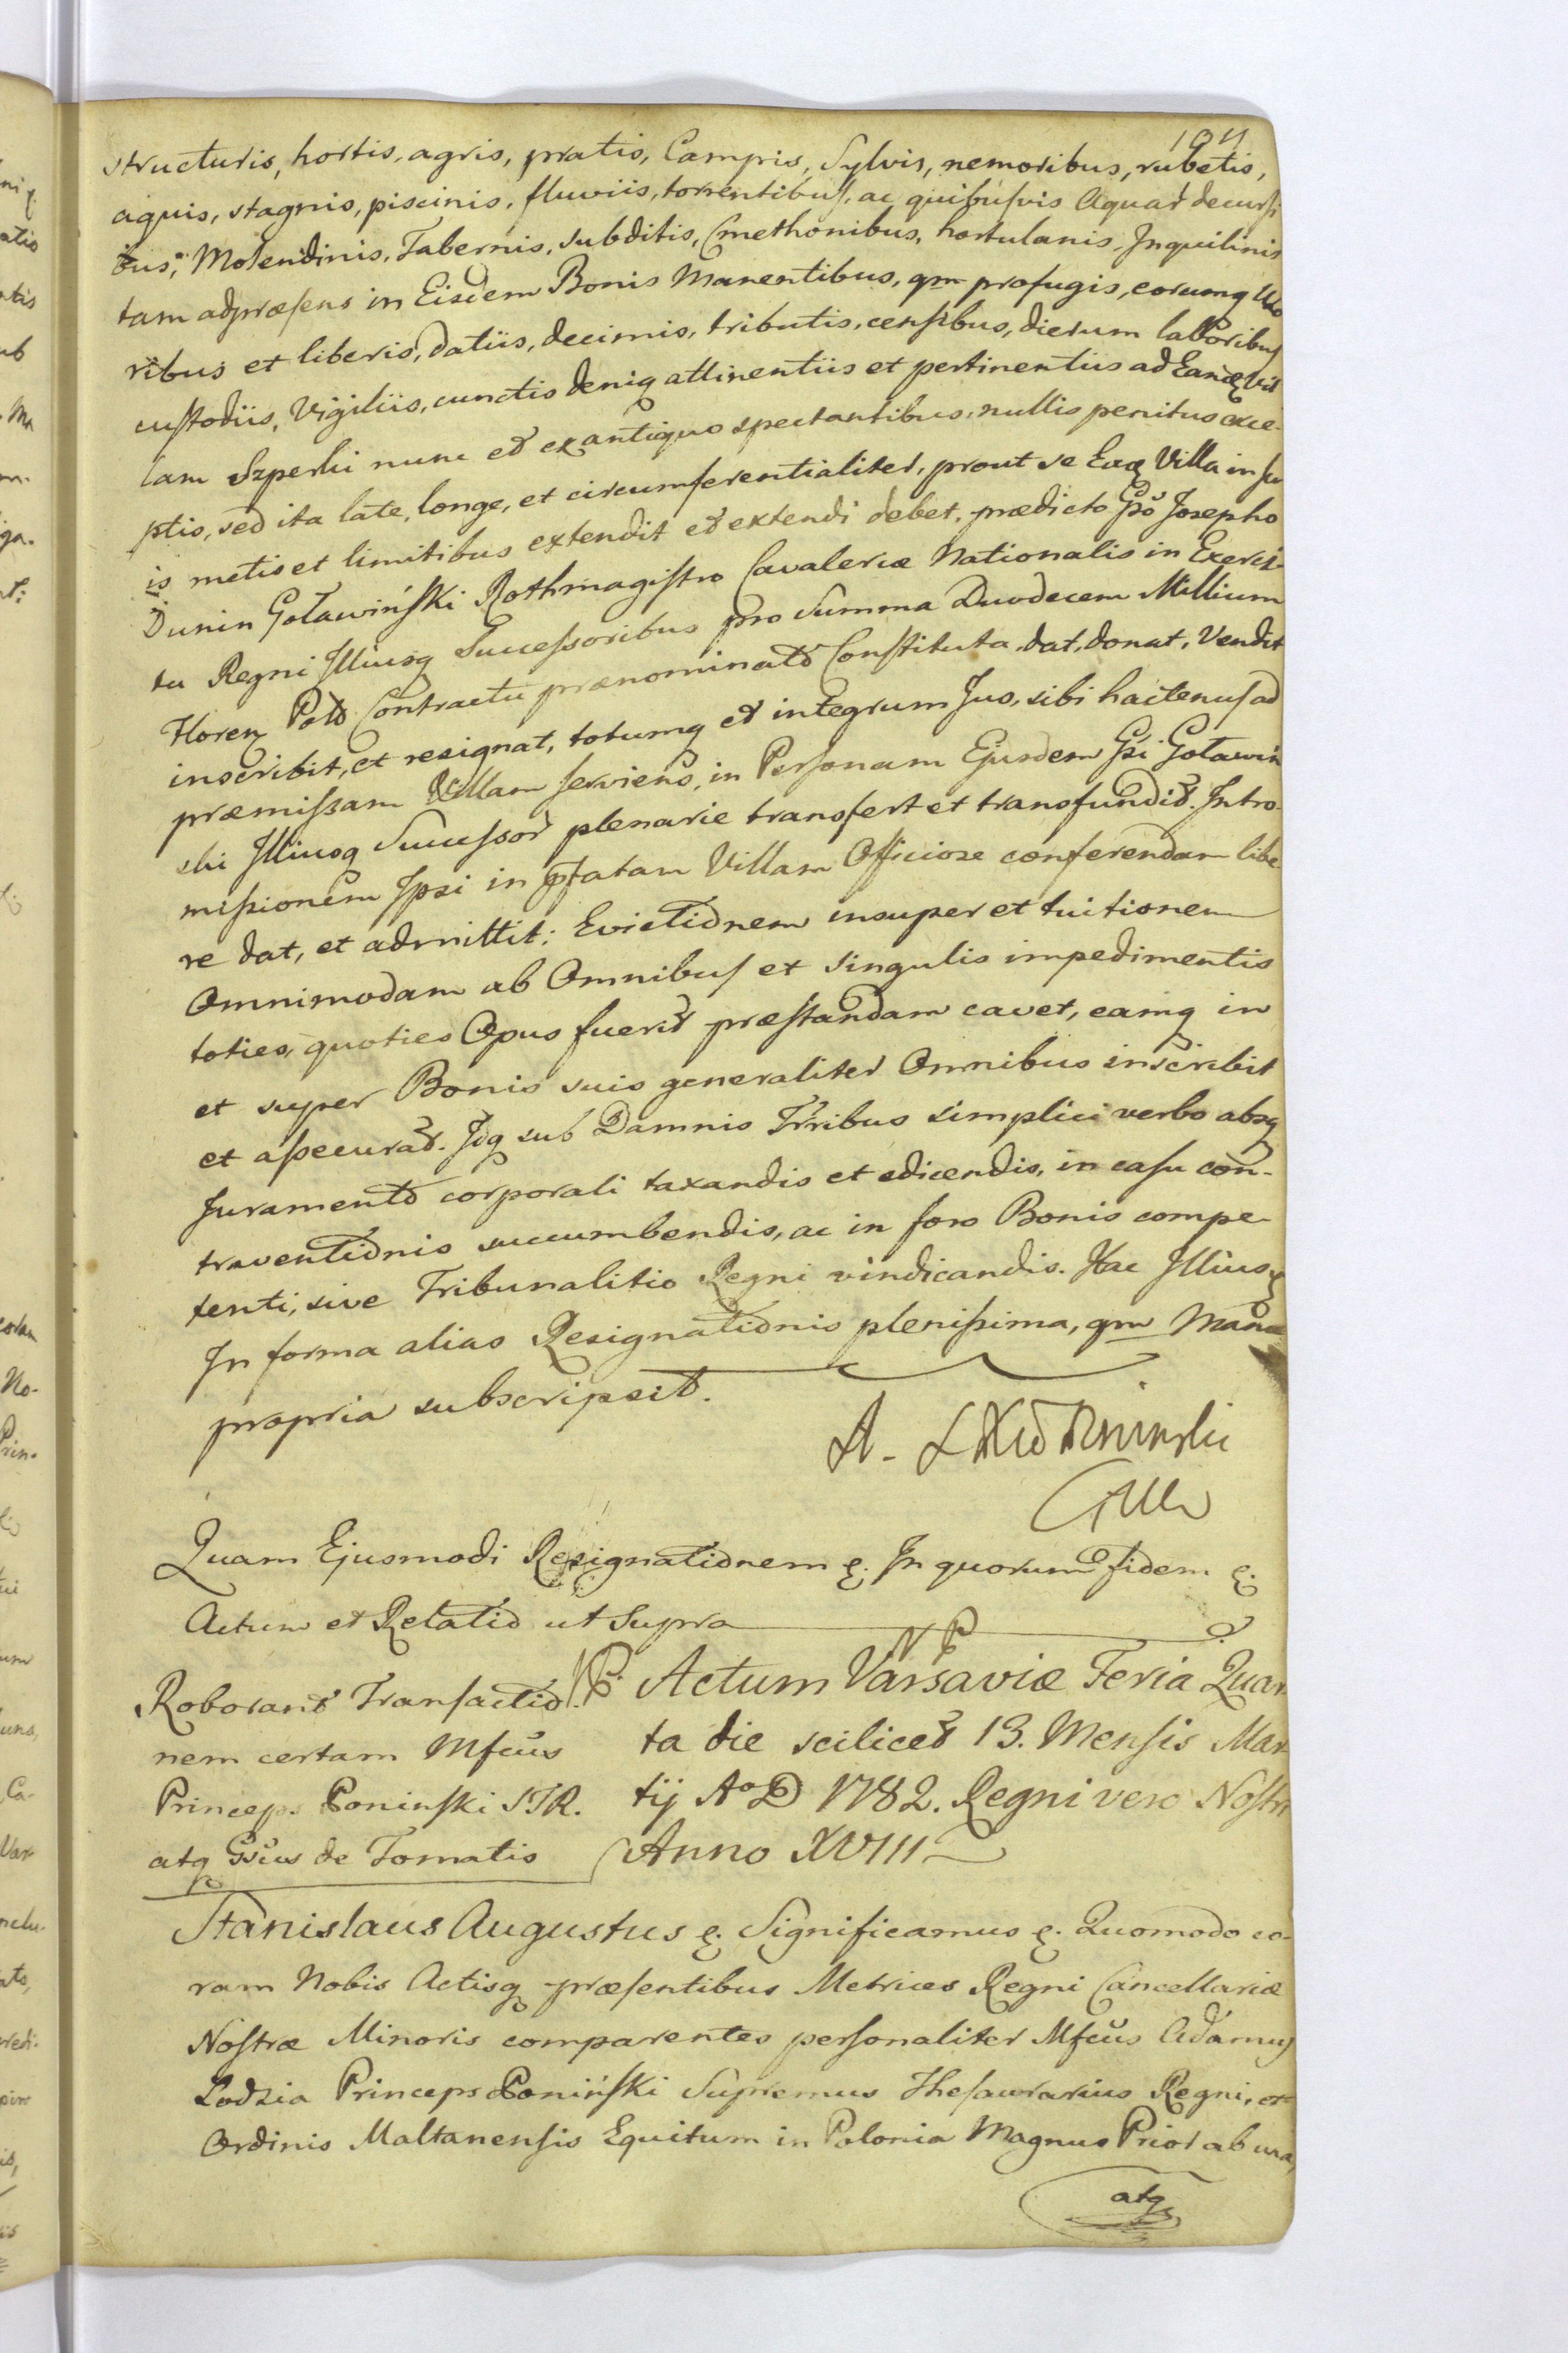 structuris, hortis, agris, pratis, Campis, Sylvis, nemoribus, rubetis,
aquis, stagnis, piscinis, fluviis, torrentibus, ac quibusvis Aquar decursi
bus, Molendinis, Tabernis, subditis, Cmethonibus, hortulanis, Inquilinis
tam adpræsens in Eisdem Bonis Manentibus, qm profugis, eorumq Uxo
ribus et liberis, datiis, decimis, tributis, censibus, dierum laboribus
custodiis, Vigiliis, cunctis deniq attinentiis et pertinentiis ad Eandq Vil
lam Szperki nunc et ex antiquo spectantibus, nullis penitus exce-
ptis, sed ita late, longe, et circumferentialiter, prout se Eaq Villa in su
is metis et limitibus extendit et extendi debet, prædicto Gso Josepho
Dunin Goławiński Rothmagistro Cavaleriæ Nationalis in Exerci-
tu Regni Illiusq Successoribus pro Summa Duodecem Millium
Floren Pol Contractu prænominato Constituta, dat, donat, Vendit
inscribit, et resignat, totumq et integrum Jus, sibi hactenus ad
præmissam Villam serviens, in Personam Ejusdem Gsi Goławiń
ski Illiusq Successor plenarie transfert et transfundit. Intro-
missionem Ipsi in pfatam Villam Officiose conferendam libe
re dat, et admittit; Evictionem insuper et tuitionem
Omnimodam ab Omnibus et singulis impedimentis
toties, quoties Opus fuerit præstandam cavet, eamq in
et super Bonis suis generaliter Omnibus inscribit
et assecurat. Idq sub Damnis Trribus simplici verbo absq
Juramento corporali taxandis et edicendis, in casu con-
traventionis succumbendis, ac in foro Bonis compe-
tenti, sive Tribunalitio Regni vindicandis. Hac Illiusq
In forma alias Resignationis plenissima, qm Manu
propria subscripsit.
Quam Ejusmodi Resignationem &. In quorum fidem &.
Actum et Relatio ut Supra
Roborant Transactio
nem certam Mfcus
Princeps Poninski STR.
atq Gsus de Tomatis
Actum Varsaviæ Feria Quar
ta die scilicet 13. Mensis Mar
tij Ao D 1782. Regni vero Nostri
Anno XVIII
Stanislaus Augustus &. Significamus &. Quomodo co-
ram Nobis Actisq præsentibus Metrices Regni Cancellariæ
Nostræ Minoris comparentes personaliter Mfcus Adamus
Lodzia Princeps Poniński Supremus Thesaurarius Regni, et
Ordinis Maltanensis Equitum in Polonia Magnus Prior ab una,
atq